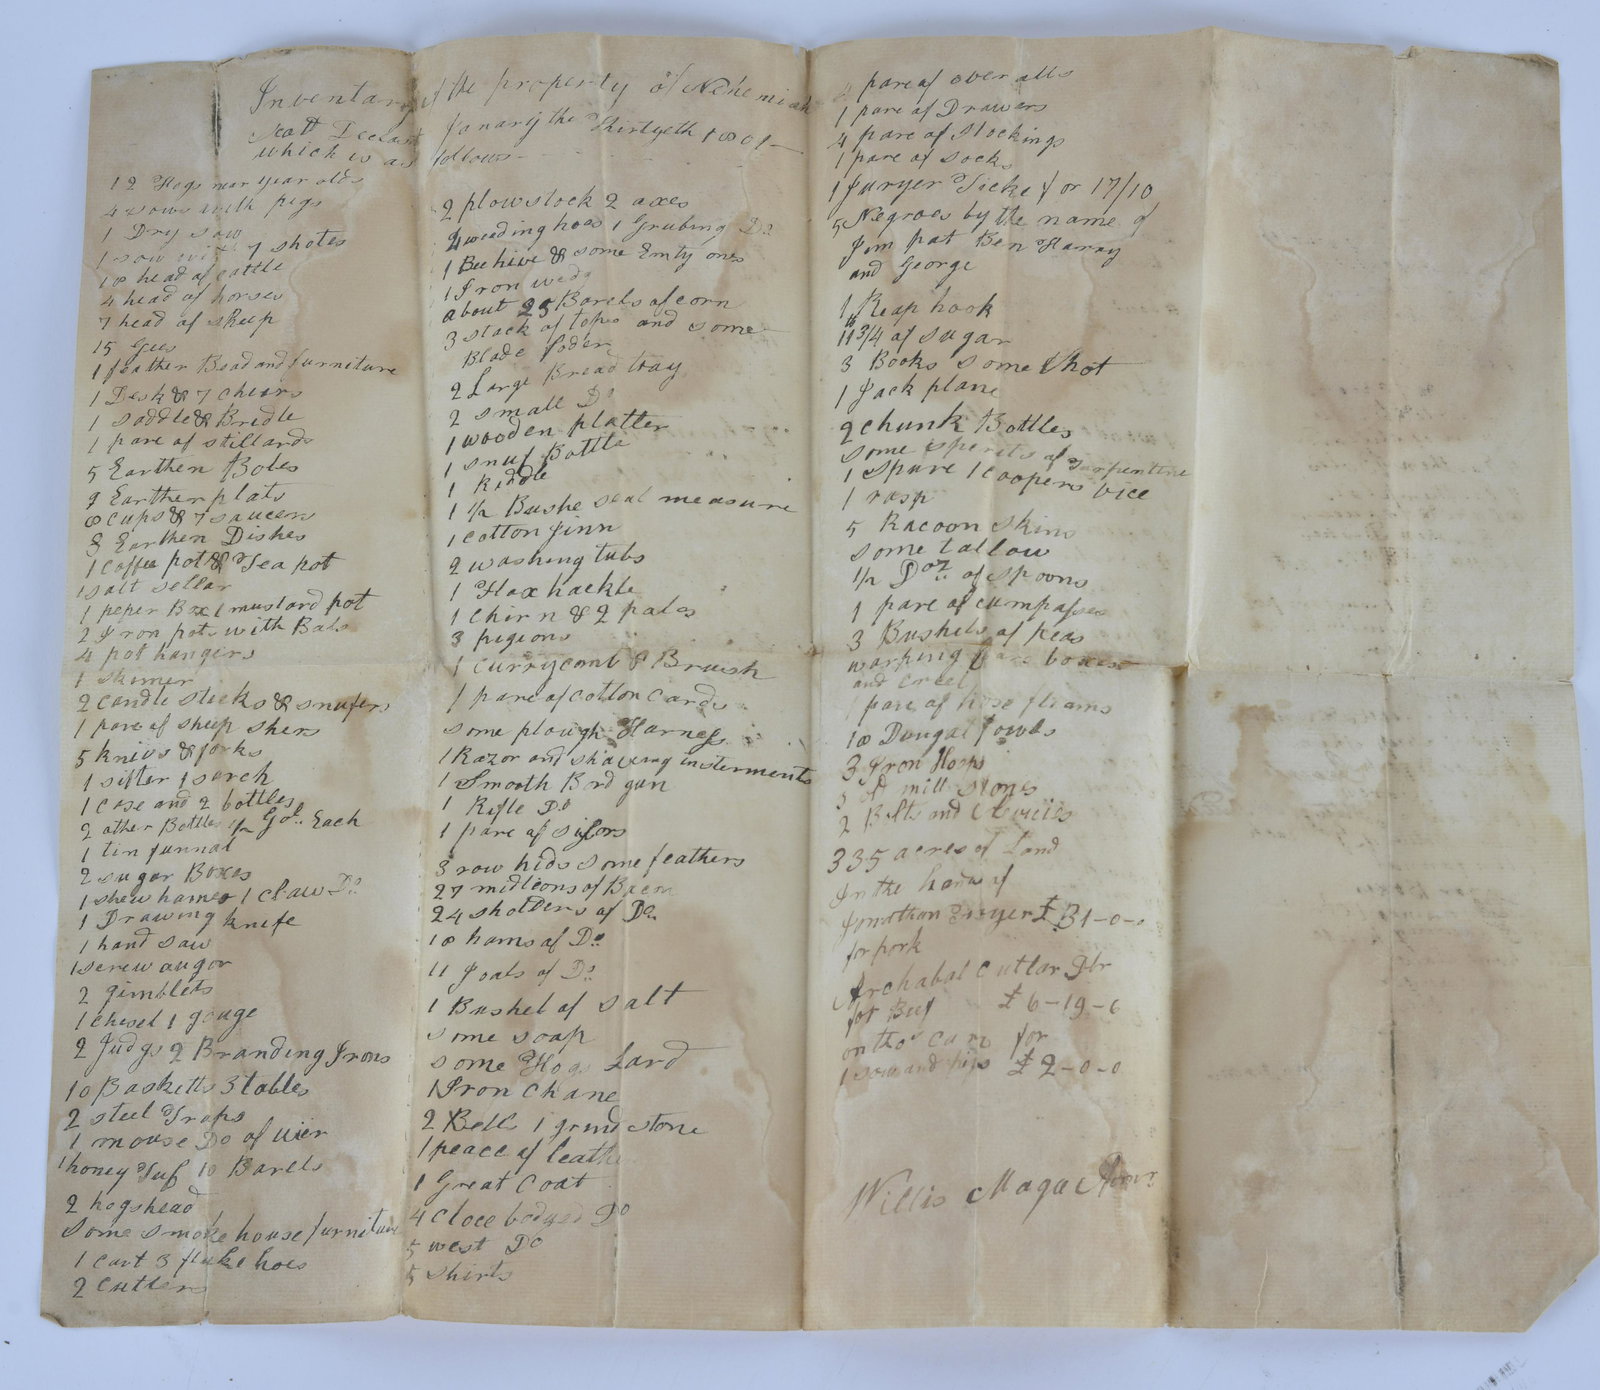 Inventary of the property of Nehemiah
Scott Deceast Janary the Thirtyeth 1801
which is as follows
12 Hogs near year olds
4 sows with pigs
1 Dry sow
1 sow with 7 shotes
18 head of cattle
4 head of horses
7 head of sheep
15 Gees
1 feather Bead and furniture
1 Desk & 7 cheirs
1 saddle & Bridle
1 pare of stillards
5 Earthen Boles
9 Earthen plats
8 cups & 7 saucers
3 Earthen Dishes
1 coffea pot & Tea pot
1 salt sellar
1 peper Box 1 mustard pot
2 Iron pots with Bals
4 pot hangers
1 skimer
2 candle sticks & snufers
1 pare of sheep shers
5 knivs & forks
1 sifter 1 sarch
1 case and 2 bottles
2 other Bottles 1/2 Gol. Each
1 tin funnal
2 sugar Boxes
1 shew hamer 1 claw Do
1 Drawing knife
1 hand saw
1 screw augor
2 gimblets
1 chisel 1 gouge
2 Judgs 2 Branding Irons
10 Basketts 3 tables
2 steel Traps
1 mouse Do of wier
1 honey 10 Barels
2 hogshead
some smoke house furniture
1 cart 3 fluke hoes
2 cutters
2 plowstock 2 axes
4 weeding hoes 1 Grubing Do
1 Bee hive & some Emty ones
1 Iron wedg
about 25 Barels of corn
3 stack of tops and some
Blade foder
2 Large Bread tray
2 small Do
1 wooden platter
1 snuf Bottle
1 Riddle
1 1/2 Bushe seal measure
1 cotton Jinn
2 washing tubs
1 Flax hackle
1 chirn & 2 pales
3 pigions
1 currycomb & Brush
1 pare of cotton cards
some plough Harness
1 Razor and shaving insterments
1 Smooth Bord gun
1 Rifle Do
1 pare of sisors
3 row hids some feathers
27 midleons of Bacon
24 sholders of Do
18 hams of Do
11 Joals of Do
1 Bushel of salt
some soap
some Hogs Lard
1 Iron chane
2 Bells 1 grindstone
1 peace of leathe
1 Great Coat
4 close bodyed Do
5 west Do
5 shirts
pare of over alls
1 pare of Drawers
4 pare of stockings
1 pare of socks
1 Juryer Ticket for 17/10
5 Negroes by the name of
Jim pat Ben Harry
and George
1 Reap hook
11 3/4 lb of sugar
3 Books some shot
1 Jack plane
2 chunk Bottles
some sperits of turpentine
1 Spure 1 coopers vice
1 rasp
5 Racoon skins
some tallow
1/2 Doz of spoons
1 pare of cumpasses
3 Bushels of peas
warping bars boxes
and creel
1 pare of hose fleams
18 Dungal fowls
3 Iron Hoops
3 old mill stones
2 Bolts and Clivicis
335 acres of Land
In the hands of
Jonathan £ 31-0-0
for pork
Archabal Cutlar Dtr
for Beef £ 6-19-6
on tho' Carr for
1 sow and pigs £ 2-0-0
Willis Maga